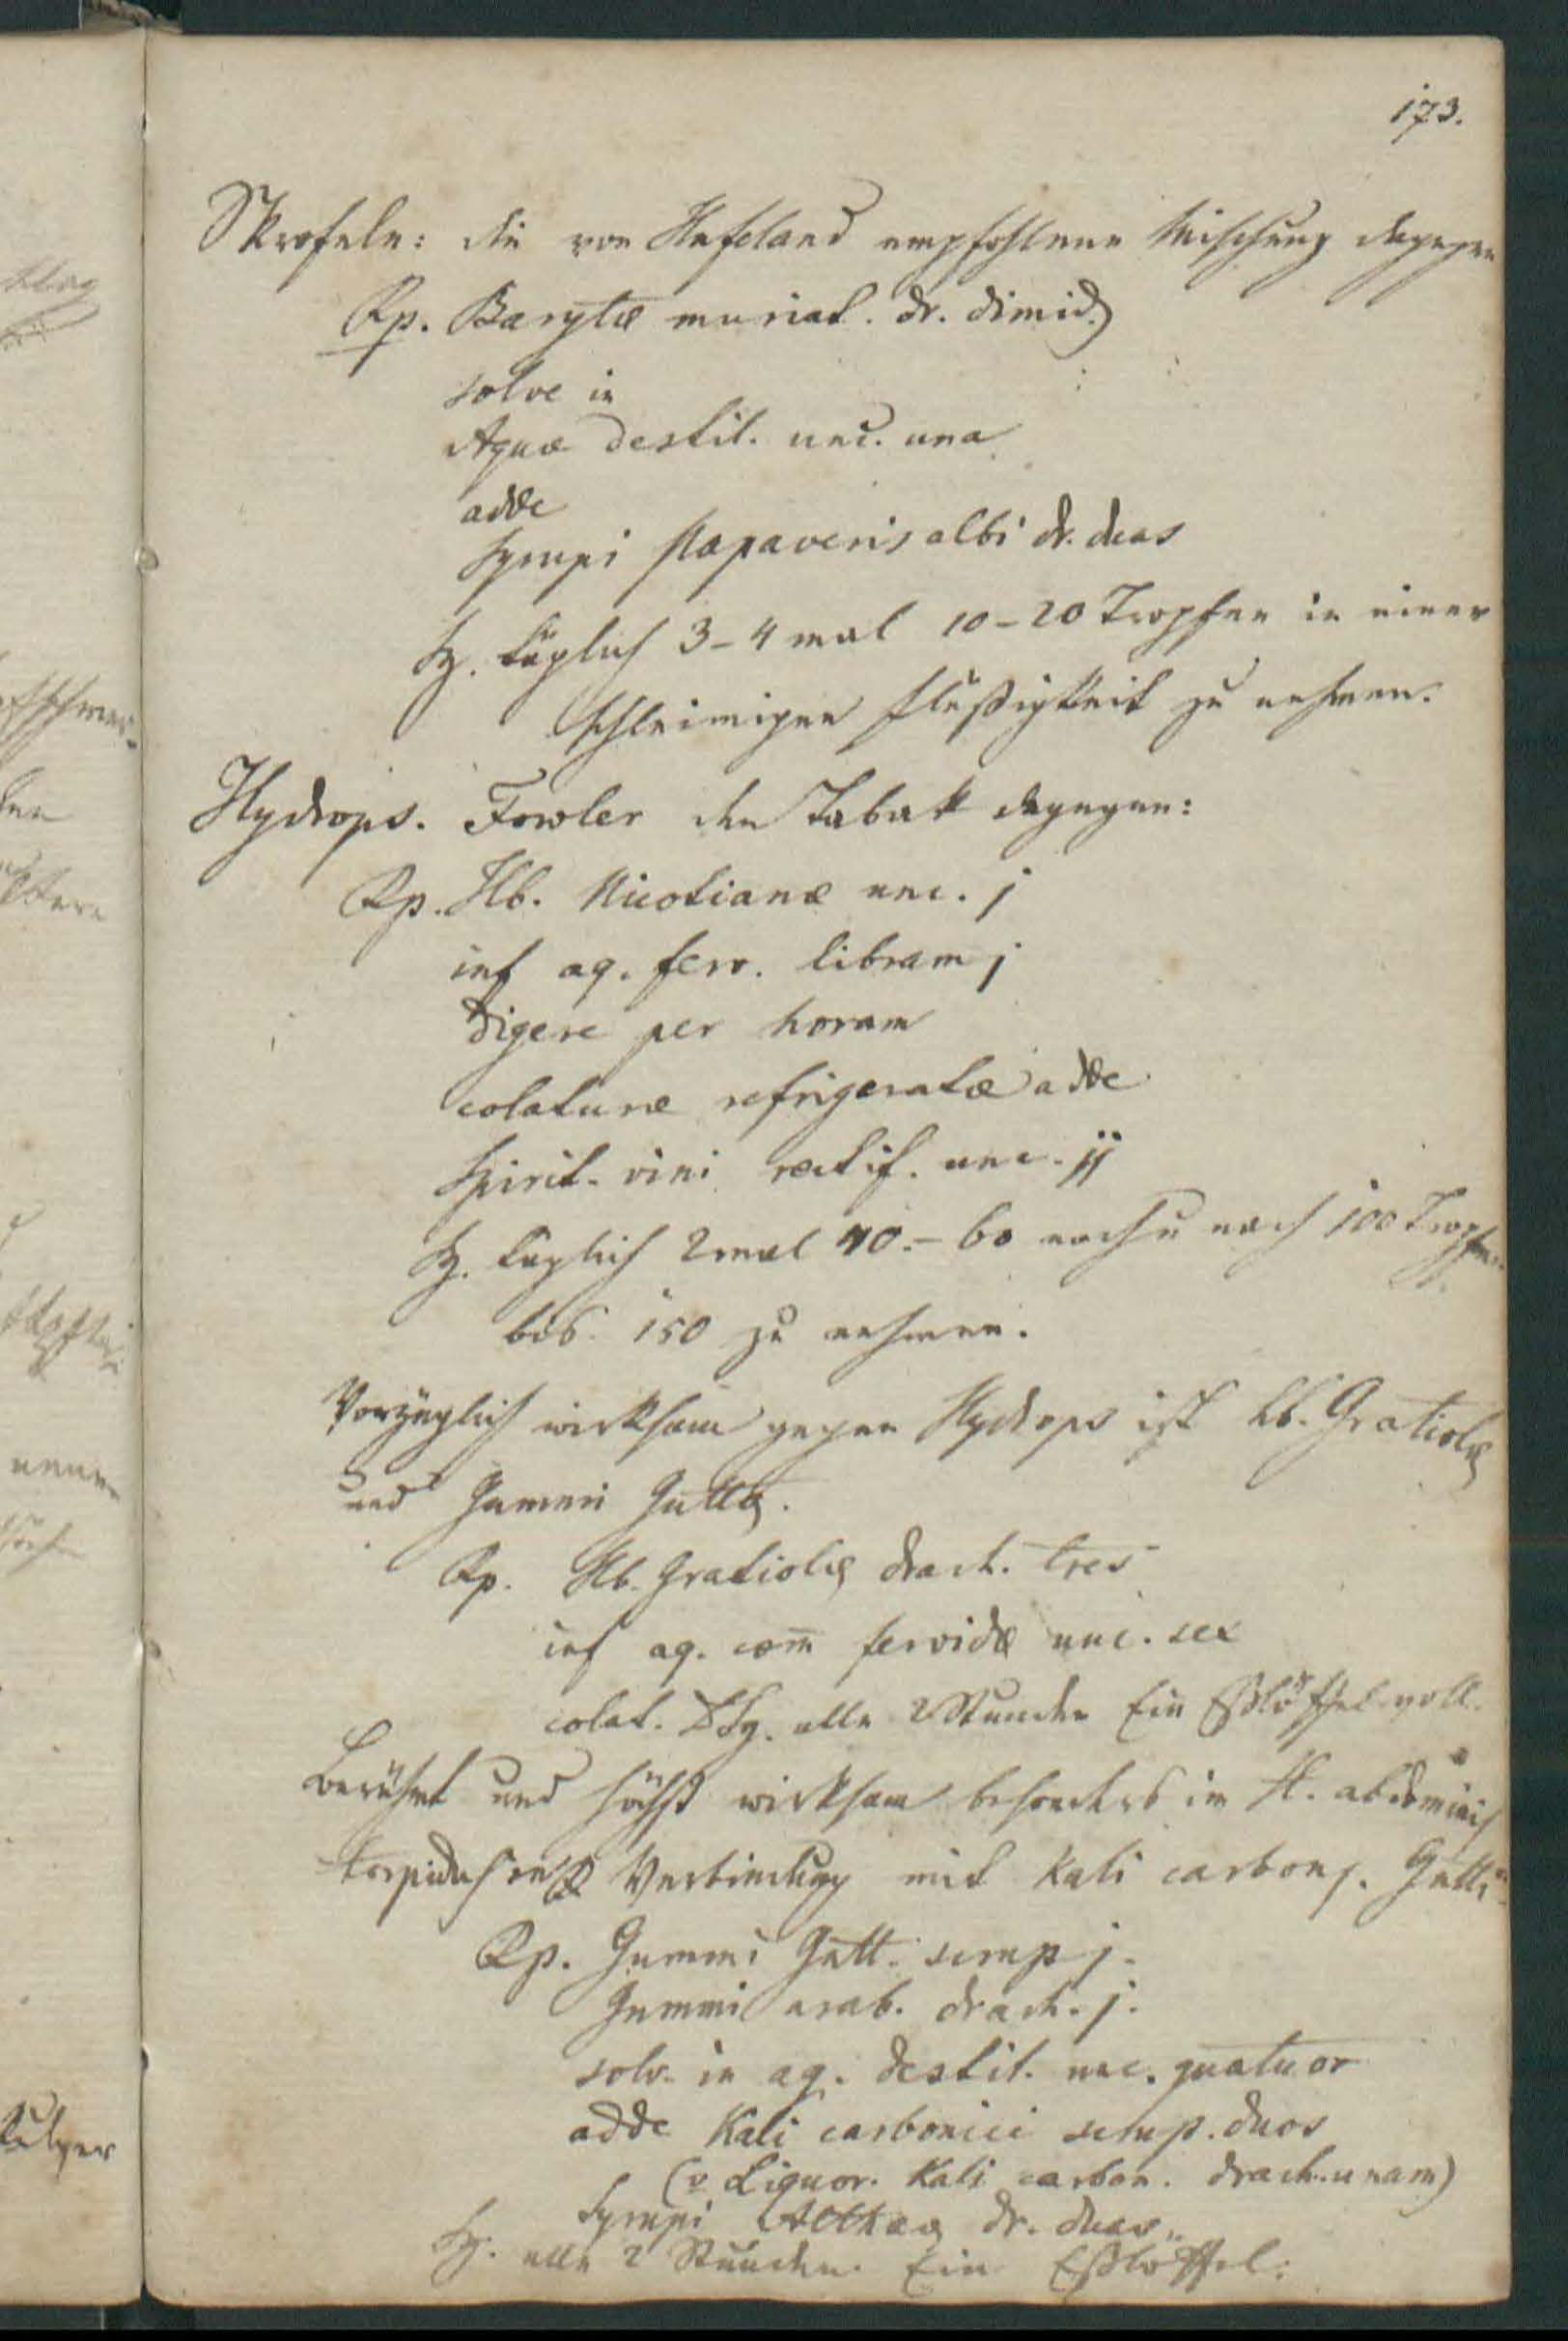 173.
Skrofeln: die von Hufeland empfohlene Mischung dagegen
Rp. Barytæ muriat. dr. dimid
solve in
Aquæ destil. unc. una
adde
Syrupi Papaveris albi dr. duas
Sg. täglich 3-4 mal 10-20 Tropfen in einer
schleimigen Flüßigkeit zu nehmen.
Hydrops. Fowler den Tabak dagegen:
Rp. Hb. Nicotianæ unc. j
inf aq. ferv. libram j
digere per horam
colaturæ refrigeratæ adde
Spirit. vini rectif. unc. ij
Sg. täglich 2 mal 40.- 60 nach u nach 100 Tropfen
bis 150 zu nehmen.
Vorzüglich wirksam gegen Hydrops ist hb. Gratiolæ
und Gummi Guttæ.
Rp. Hb. Gratiolæ drach. tres
inf aq. com̄ fervidæ unc. sex
colat. DSg. alle 2 Stunden Ein Eßlöffel voll.
Berühmt und höchst wirksam besonders im H. abdominis
Verbindung mit Kali carbon. Gutti
Rp. Gummi Gutt. scrup j.
Gummi arab. drach. j.
solv. in aq. destil. unc. quatuor
adde Kali carbonici scrup. duos
Liquor. Kali carbon. drach. unam)
Syrupi Altheæ dr. duas
Sg. alle 2 Stunden Ein Eßlöffel.